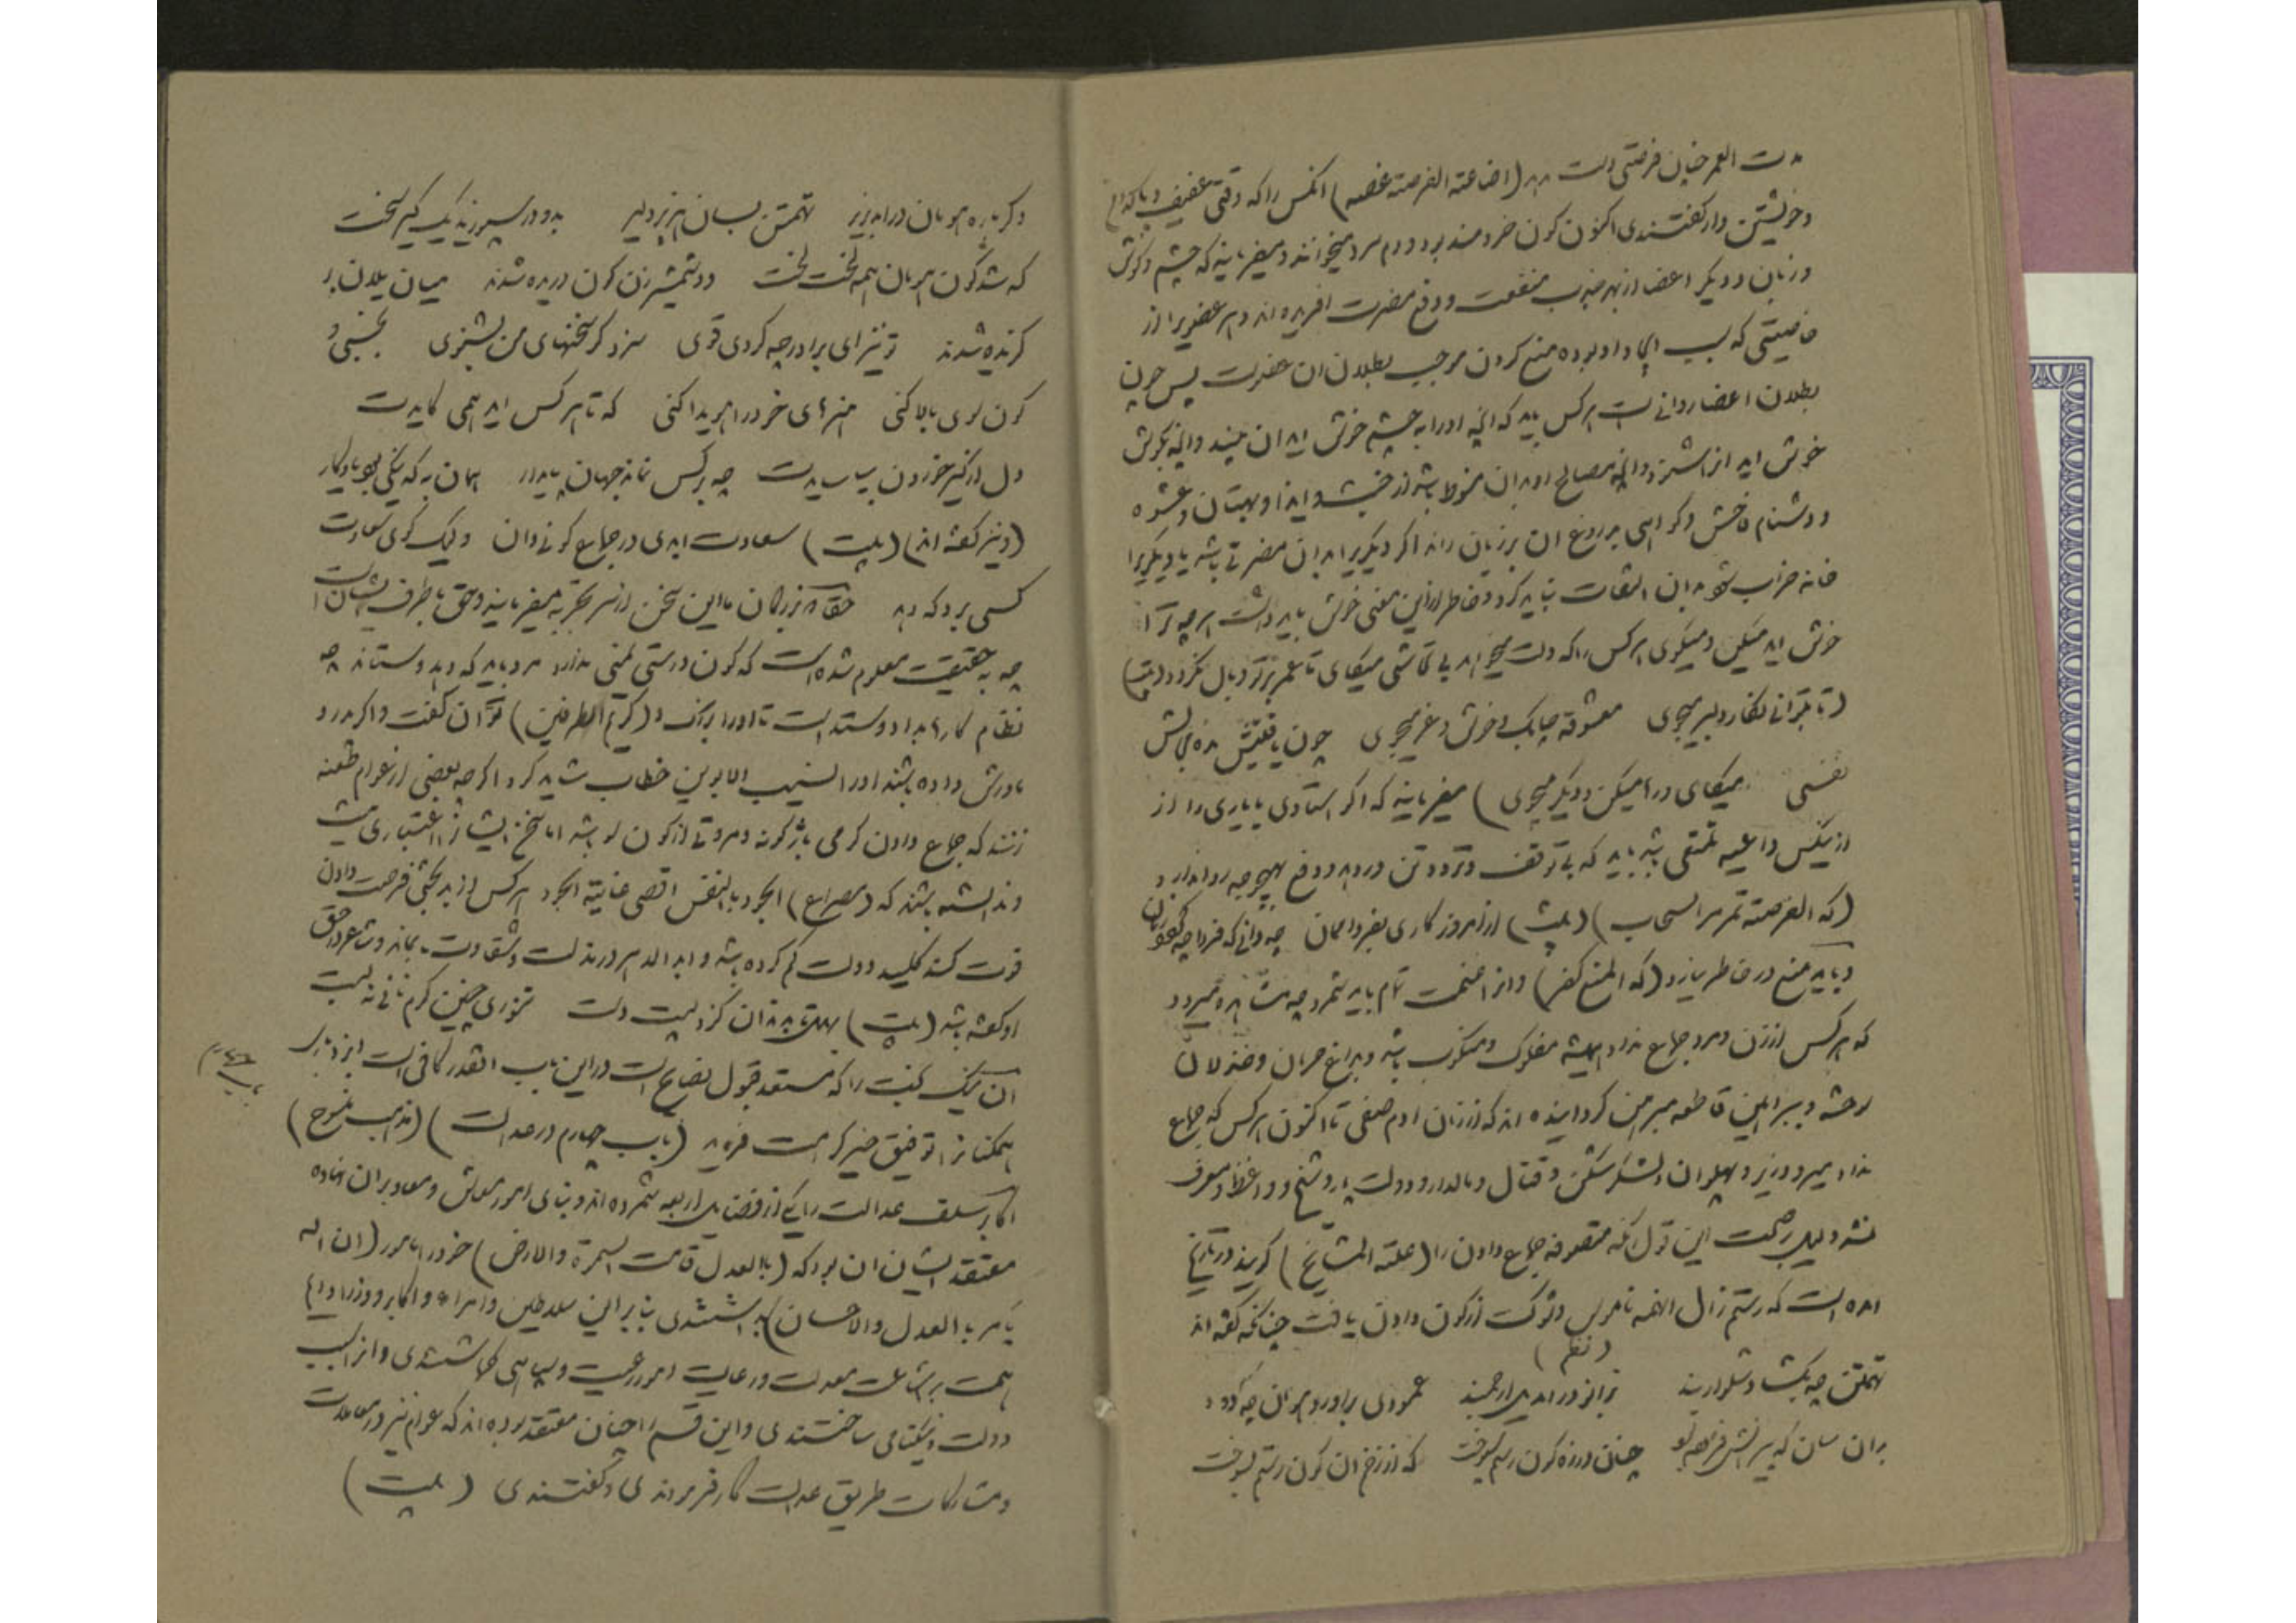 مدت العمر چنان فرصتی دست دهد (اضاعته الفرصته غصه) انکس را که وقتی عفیف و پاکدامن
و خویشتن دار گفتندی اکنون کون خر و مندبور و دم سرد میخوانند و میفرمایند که چشم و گوش
و زبان و دیگر اعضا از بهر جذب منفعت و دفع مضرت افریده اند و هر عضو یرا از
خاصیتی که سبب ایجاد او بوده منع کردن موجب بطلان ان عضو است پس چون
بطلان اعضا روا نیست هر کس باید که انچه او را به چشم خوش اید ان بیند و انچه بگوش
خوش اید ان شنود و انچه مصالح او بدان منوط باشد از خبث و ایذا و بهتان و عشوه
و دشنام فاحش و گواهی بدروغ ان بر زبان راند اگر دیگریرا بدان مضرتی باشد یا دیگریرا
خانه خراب شود بدان التفات نباید کرد و خاطر از این معنی خوش باید داشت هر چه ترا
خوش اید میکن و میگوی هر کس را که دلت میخواهد بی تحاشی میگای تا عمر بر تو وبال نگردد (بیت)
(تا بتوانی نگار دلبر میجوی    معشوقه چابک و خوش و نغز میجوی    چون یافتیش مده مجالش
نفسی    میگای و رها میکن و دیگر میجوی) میفرمایند که اگر استادی یا یاری را از
از یکس داعیه تمتعی باشد باید که بی توقف و تردد تن در دهد و دفع بهیچوجه روا ندارد
(که الفرصته تمر مر السحاب) (بیت) از امروز کاری بفردا ممان    چه دانی که فردا چه گردد زمان
و باید منع در خاطر نیارد (که المنع کفر) و انرا غنیمت تمام باید شمرد چه مشاهده میرود
که هر کس از زن و مرد جماع نداد همیشه مفلوک و منکوب باشد و بداغ حرمان و خذلان
سوخته و ببراهین قاطعه مبرهن گردانیده اند که از زمان ادم صفی تا اکنون هر کس که جماع
نداد میر و وزیر و پهلوان و لشکر شکن و قتال و مالدار و دولت یار و شیخ و واعظ و معرف
نشد دلیل بر صحت این قول انکه متصوفه جماع دادن را (علته المشایخ) گویند در تاریخ
امده است که رستم زال انهمه ناموس و شوکت از کون دادن یافت چنانکه گفته اند
(نظم)
تهمتن چو بگشاد شلوار بند    بزانو درامد یل ارجمند    عمودی براورد هومان چو دود
بدان سان که پیرانش فرموده بود    چنان در زه کون رستم سپوخت    که از زخم ان کون رستم بسوخت
دگر باره هومان درامد بزیر    تهمتن بسان هژبر دلیر    بدو در سپوزید یک کیر سخت
که شد کون هومان همه لخت لخت    دو شمشیر زن کون دریده شدند    میان یلان بر
گزیده شدند    تو نیز ای برادر چو گردی قوی    سزد گر سخنهای من بشنوی    بخسبی و
کون سوی بالا کنی    هنرهای خود را هویدا کنی    که تا هر کس اید همی گایدت
دل از کیر خوردن بیاسایدت    چو بر کس نماند جهان پایدار    همان به که نیکی بود یادگار
(و نیز گفته اند) (بیت) سعادت ابدی در جماع کونی دان    ولیک گوی سعادت
کسی برد که دهد    حقا که بزرگان ما این سخن از سر تجربه میفرمایند و حق با طرف ایشان است
چه به حقیقت معلوم شده است که کون درستی یمنی ندارد مرد باید که دهد و ستاند چه
نظام کارها بداد و ستد است تا او را بزرگ و (کریم الطرفین) توان گفت و اگر پدر و
مادرش داده باشند او را السنیب الابوین خطاب شاید کرد اگر چه بعضی از عوام طعنه
زنند که جماع دادن کرمی باژگونه و مروتی از کون سو باشد اما سخن ایشان را اعتباری نیست
و ندانسته باشند که (مصراع) الجود بالنفس اقصی غایته الجود هر کس از بدبختی فرصت دادن
فوت کند کلید دولت گم کرده باشد و ابد الدهر در مذلت و شقاوت بماند و شاعر در حق
او گفته باشد (بیت)                 تنوری چنین گرم نانی نه بست
ان نیک بخت را که مستعد قبول نصایح است در این باب انقدر کافی است ایزد باری
همکنانرا توفیق خیر کرامت فرماید (باب چهارم در عدالت) (مذهب منسوخ)
اکابر سلف عدالت را یکی از فضایل اربعه شمرده اند و بنای امور معاش و معاد بران نهاده
معتقد ایشان ان بود که (بالعدل قامت السموة والارض) خود را مامور (ان اله
یامر بالعدل والاحسان) بداشتندی بنابراین سلاطین و امراء و اکابر و وزرا دایم
همت بر اشاعت معدلت و رعایت امور رعیت و سپاهی گماشتندی و انرا سبب
دولت و نیکنامی ساختندی و این قسم را چنان معتقد بوده اند که عوام نیز در معاملات
و مشارکات طریق عدالت کار فرمودندی و گفتندی (بیت)